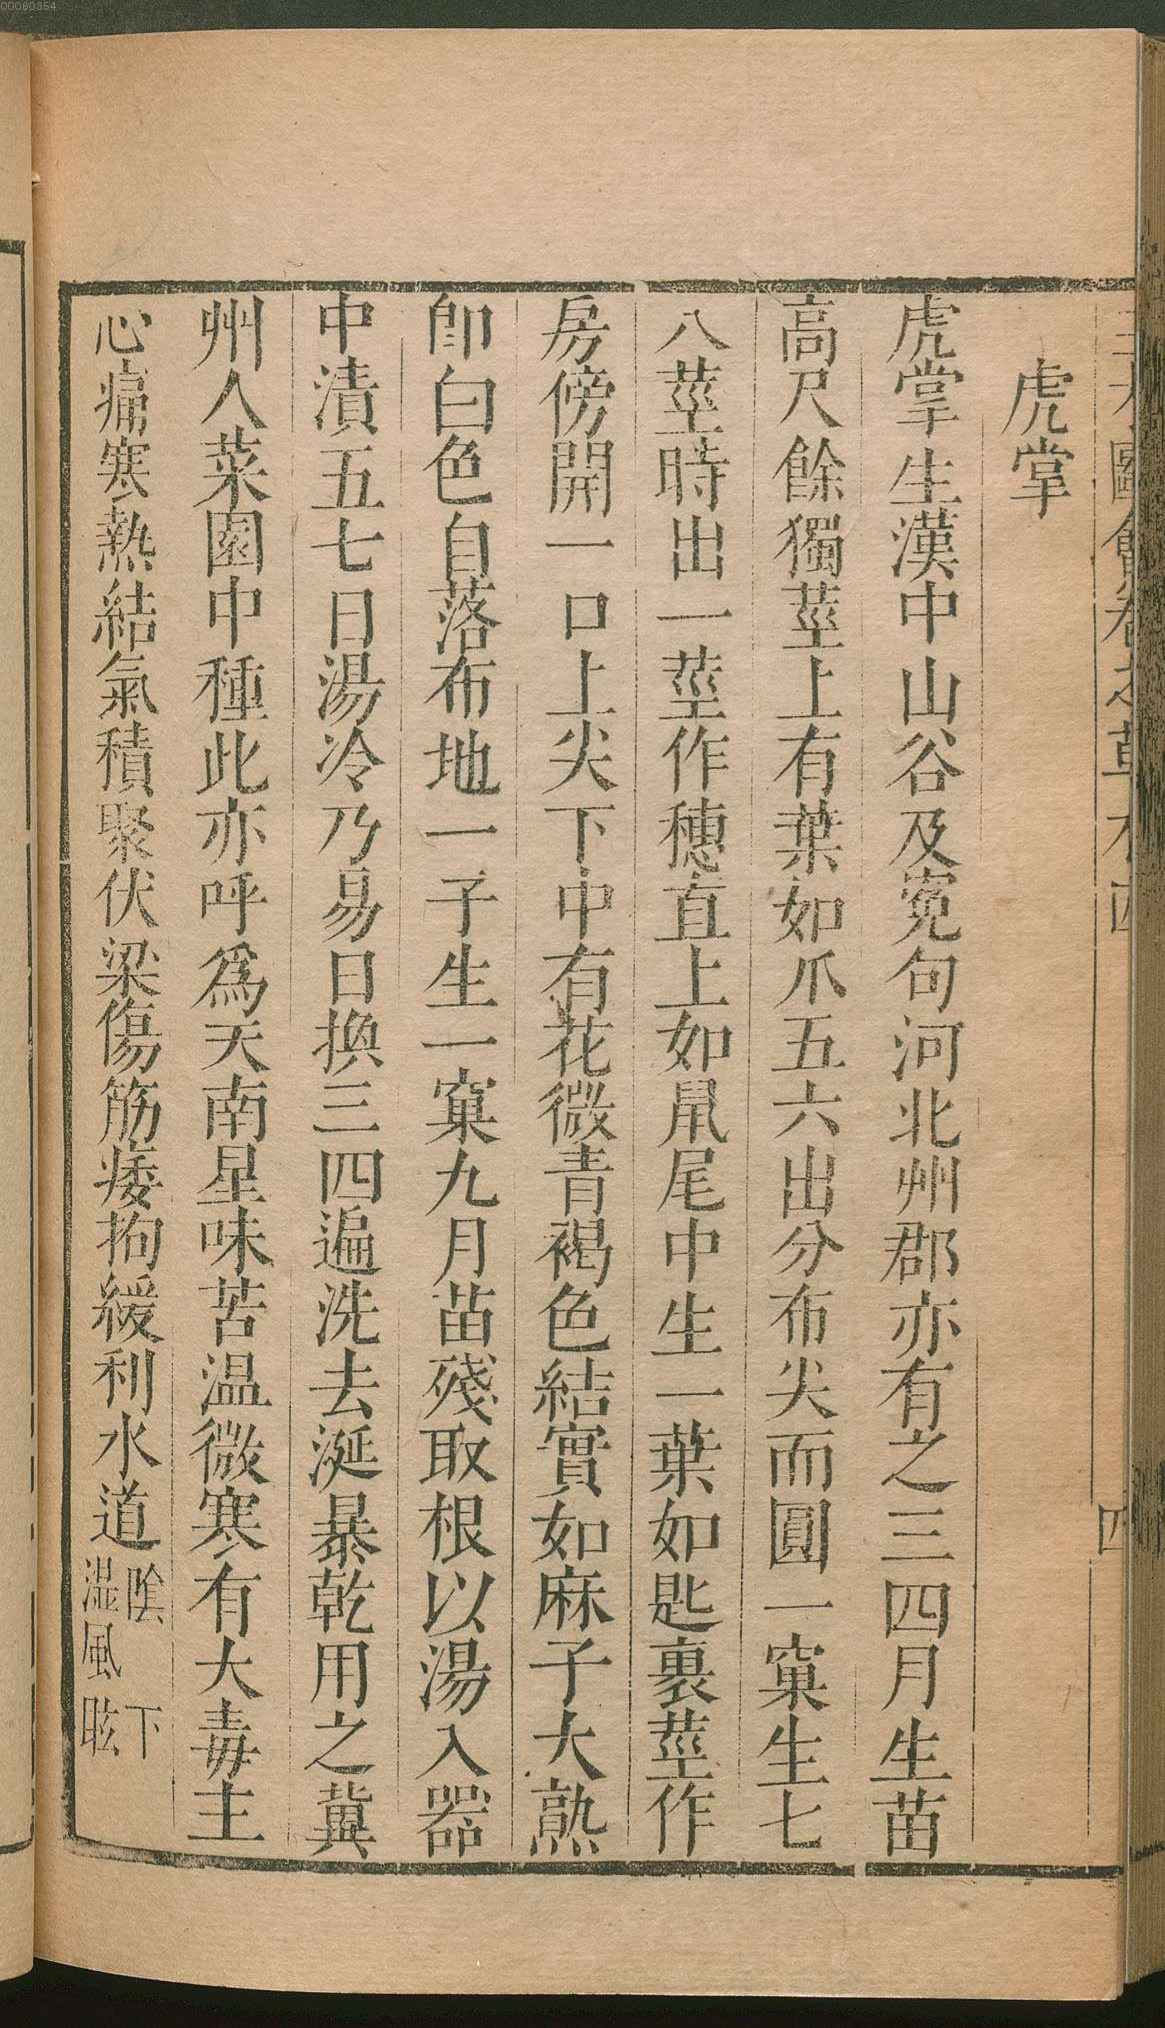 00060354
虎掌
虎掌生漢中山谷及寃句河北州郡亦有之三四月生苗
高尺餘獨莖上有葉如爪五六出分布尖而圓一窠生七
八莖時出一莖作穗直上如鼠尾中生一葉如匙裹莖作
房傍開一口上尖下中有花微青褐色結實如麻子大熟
卽白色自落布地一子生一窠九月苗殘取根以湯入器
中漬五七日湯冷乃易日換三四遍洗去涎暴乾用之冀
州人菜園中種此亦呼爲天南星味苦温微寒有大毒主
心痛寒熱結氣積聚伏梁傷筋痿拘緩利水道
陰下
湿風眩